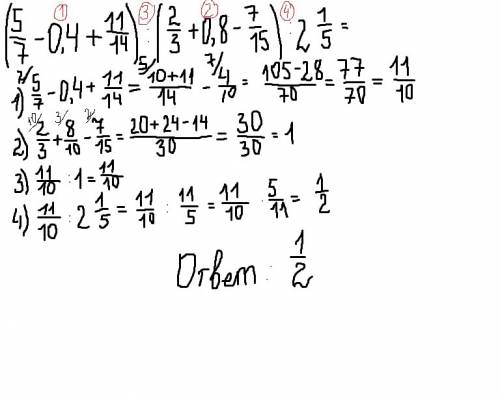 (5/7 - 0,4 + 11/14) : (2/3 + 0,8 - 7/15) : 2 1/5 =
① ③ ② ④
1) 5/7 - 0,4 + 11/14 = (10+11)/14 - 4/10 = (105-28)/70 = 77/70 = 11/10
2) 2/3 + 8/10 - 7/15 = (20+24-14)/30 = 30/30 = 1
3) 11/10 : 1 = 11/10
4) 11/10 : 2 1/5 = 11/10 : 11/5 = 11/10 · 5/11 = 1/2
Ответ: 1/2